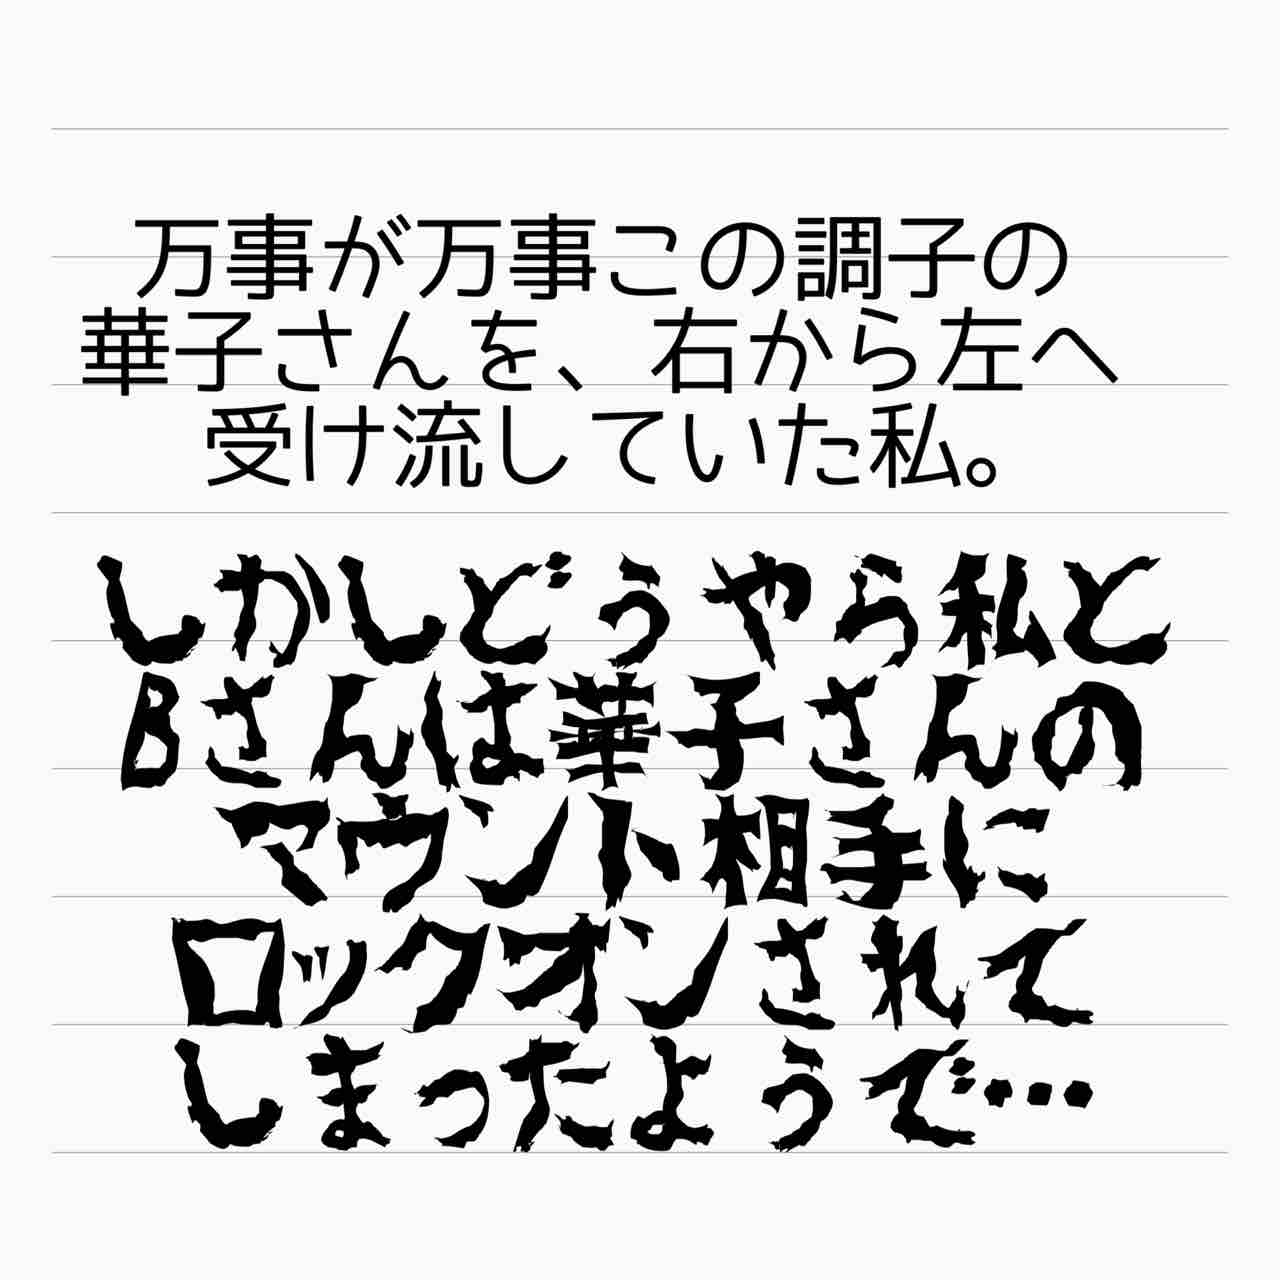 万事が万事この調子の
華子さんを、右から左へ
受け流していた私。
しかしどうやら私と
Bさんは華子さんの
マウント相手に
ロックオンされて
しまったようで…